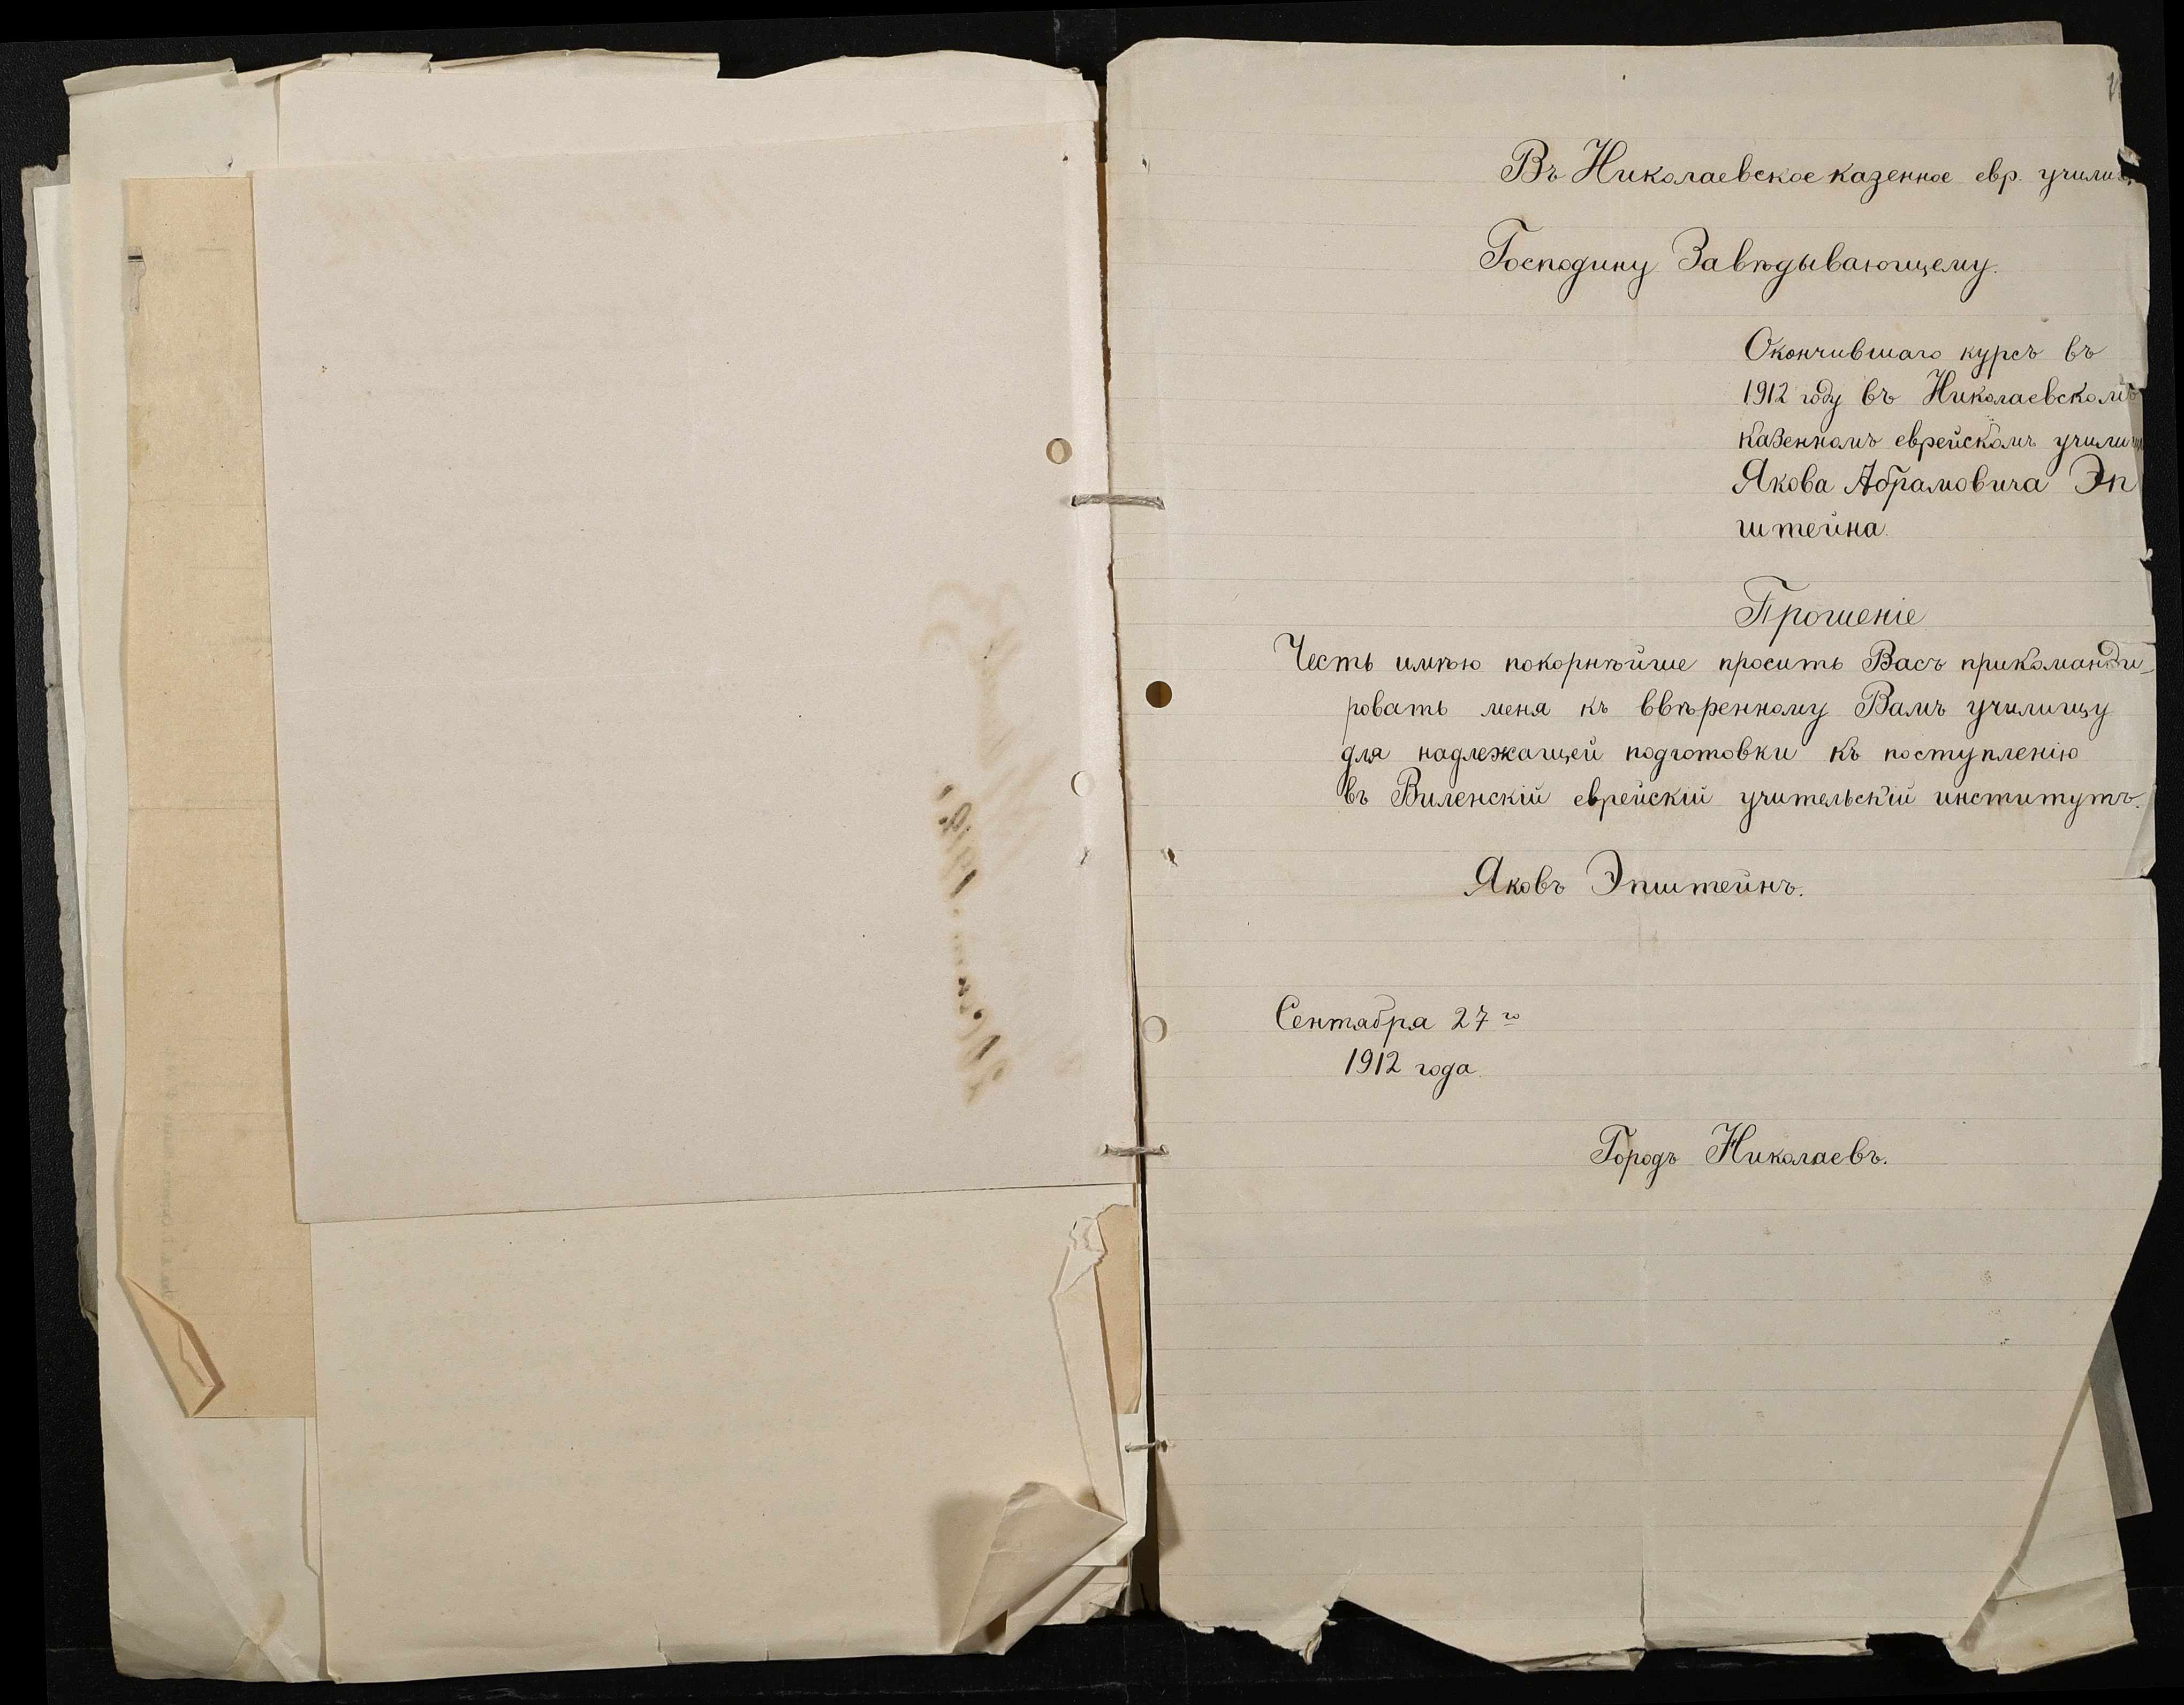 Въ Николаевское казенное евр. учили
Господину Завѣдывающему.
Окончившаго курсъ въ
1912 году въ Николаевскомъ
казенномъ еврейскомъ учили
Якова Абрамовича Эп
штейна.
Прошеніе
Честь имѣю покорнѣйше просить Васъ прикоманди-
ровать меня къ ввѣренному Вамъ училищу
для надлежащей подготовки къ поступленію
въ Виленскій еврейскій учительскій институтъ.
Яковъ Эпштейнъ.
Сентября 27го
1912 года.
Городъ Николаевъ.